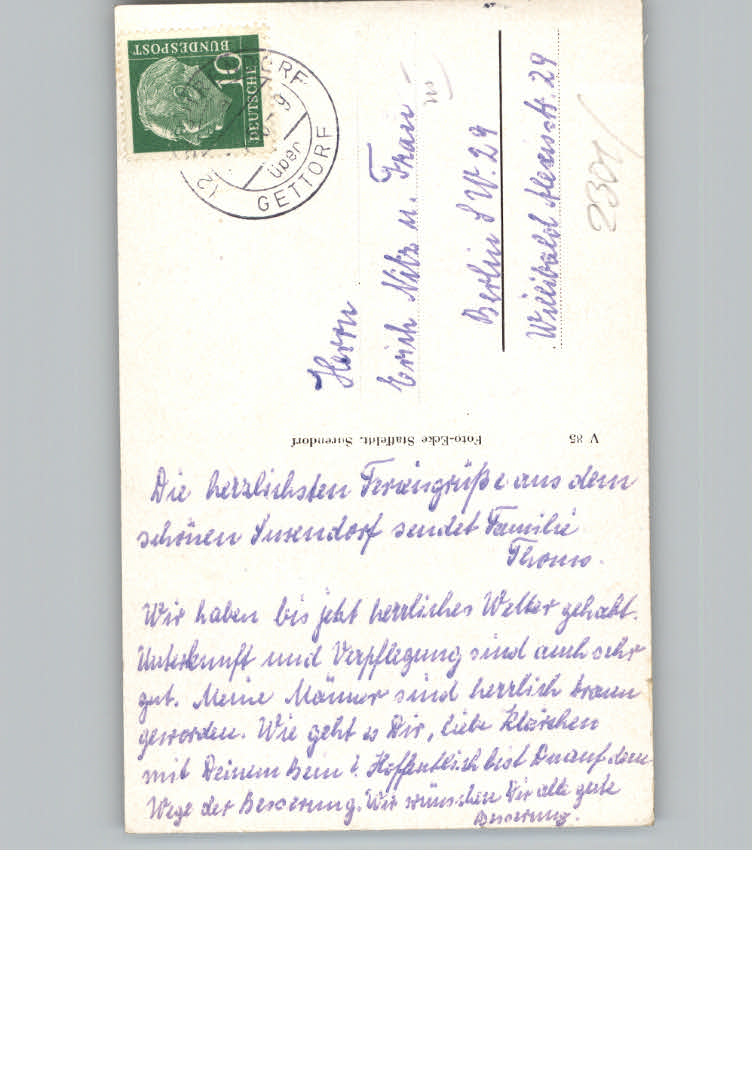 Die herzlichsten Feriengrüße aus dem
schönen Surendorf sendet Familie
Thoms.
Wir haben bis jetzt herrliches Wetter gehabt.
Unterkunft und Verpflegung sind auch sehr
gut. Meine Männer sind herrlich braun
geworden. Wie geht es Dir, liebe Klärchen
mit Deinem Bein? Hoffentlich bist Du auf dem
Wege der Besserung. Wir wünschen Dir alle gute
Besserung.
Herrn
Erich Nitz u. Frau
Berlin SW. 29
Willibald Alexisstr. 29
2301/
V 85 Foto-Ecke Staffeldt, Surendorf
DEUTSCHE
BUNDESPOST
10
über
GETTORF